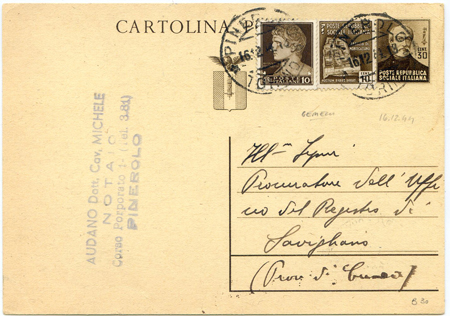 CARTOLINA
PINEROLO
16.12.44
TORINO
10
POSTE REPUBBLICA
SOCIALE ITALIANA
LIRE
30
POSTE REPUBBLICA
SOCIALE ITALIANA
GEMELLI
16.12.44
Procuratore dell'Uffi
cio del Registro di
Savigliano
(Prov. di Cuneo)
B 30
AUDANO Dott. Cav. MICHELE
NOTAIO
Corso Porporato 1 (Tel. 3.81)
PINEROLO